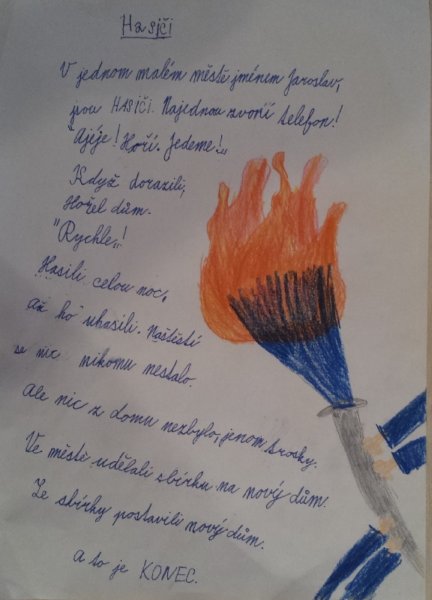 Hasiči
V jednom malém městě jménem Jaroslav,
jsou HASIČI. Najednou zvoní telefon!
"Ajéje! Hoří. Jedeme!"
Když dorazili,
Hořel dům.
"Rychle"!
Hasili celou noc,
až ho uhasili. Naštěstí
se nic nikomu nestalo.
Ale nic z domu nezbylo, jenom trosky.
Ve městě udělali sbírku na nový dům.
Ze sbírky postavili nový dům.
a to je KONEC.